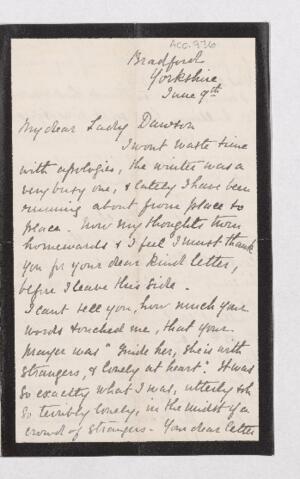 ACC. 936
Bradford
Yorkshire
June 9th
My dear Lady Dawson
I wont waste time
with apologies, the winter was a
very busy one, & lately I have been
running about from place to
place. Now my thoughts turn
homewards & I feel I must thank
you for your dear kind letter,
before I leave this side.
I cant tell you, how much your
words touched me, that your
prayer was "Guide her, she is with
strangers, & lonely at heart". It was
so exactly what I was, utterly & oh
so terribly lonely, in the midst of a
crowd of strangers - Your dear letter